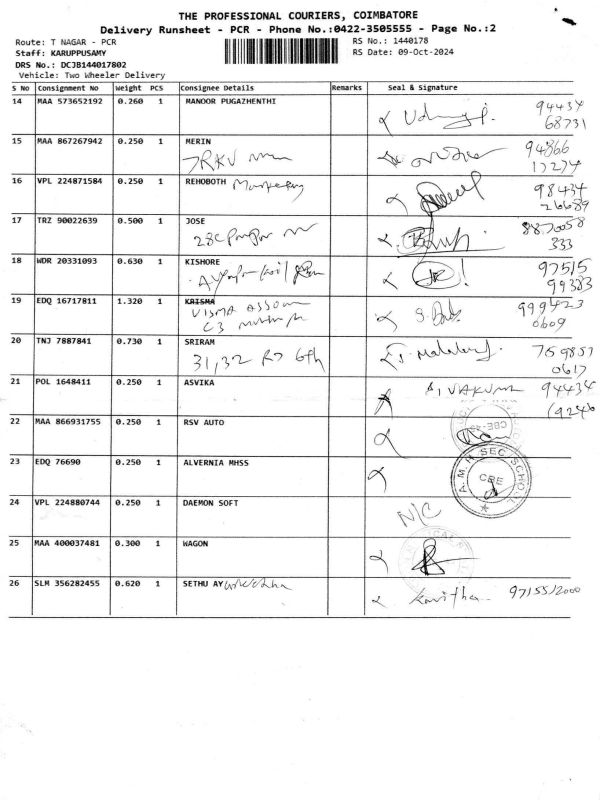 THE PROFESSIONAL COURIERS, COIMBATORE
Delivery Runsheet - PCR - Phone No.:0422-3505555 - Page No.:2
Route: T NAGAR - PCR RS No.: 1440178
Staff: KARUPPUSAMY RS Date: 09-Oct-2024
DRS No.: DCJB144017802
Vehicle: Two Wheeler Delivery
S No Consignment No Weight PCS Consignee Details Remarks Seal & Signature
14 MAA 573652192 0.260 1 MANOOR PUGAZHENTHI 94434
68731
15 MAA 867267942 0.250 1 MERIN 94866
7RKV 17274
16 VPL 224871584 0.250 1 REHOBOTH Marketing 98434
26689
17 TRZ 90022639 0.500 1 JOSE 8870058
28C 333
18 WDR 20331093 0.630 1 KISHORE 97515
99383
19 EDQ 16717811 1.320 1 KRISMA 999423
VISMA 0609
C3
20 TNJ 7887841 0.730 1 SRIRAM 759857
31,32 0617
21 POL 1648411 0.250 1 ASVIKA 94434
22 MAA 866931755 0.250 1 RSV AUTO
23 EDQ 76690 0.250 1 ALVERNIA MHSS
A.M.H SEC SCHOOL
CBE
24 VPL 224880744 0.250 1 DAEMON SOFT N/C
25 MAA 400037481 0.300 1 WAGON
26 SLM 356282455 0.620 1 SETHU AY Kavitha 9715512000